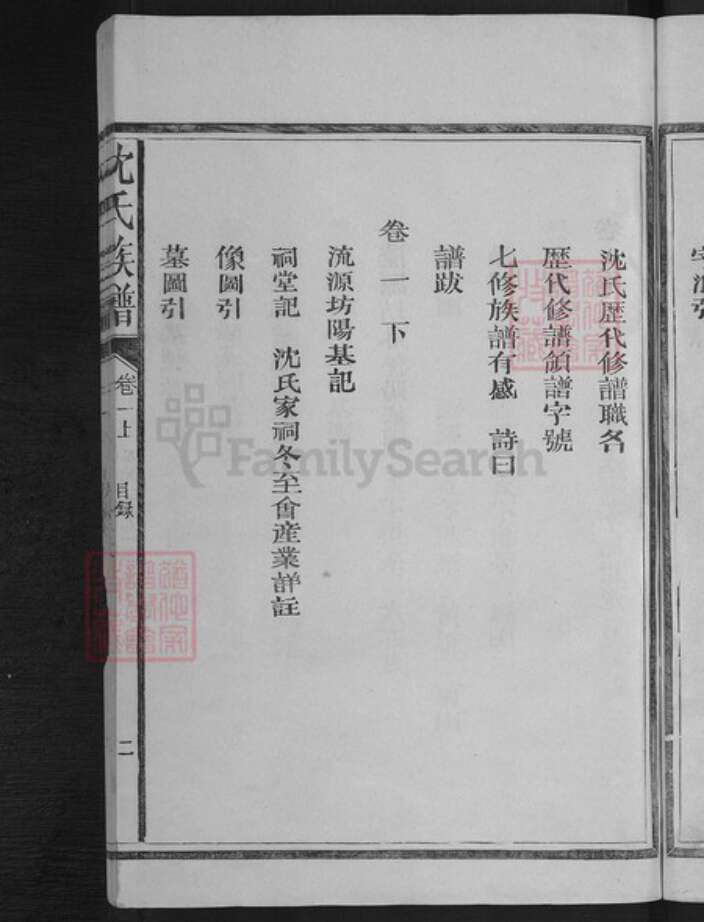 沈氏歷代修譜職名
歷代修譜領譜字號
七修族譜有感　詩曰
譜跋
卷一下
流源坊陽基記
祠堂記　沈氏家祠冬至會產業詳註
像圖引
墓圖引
沈氏族譜　卷一上　目錄　二
FamilySearch